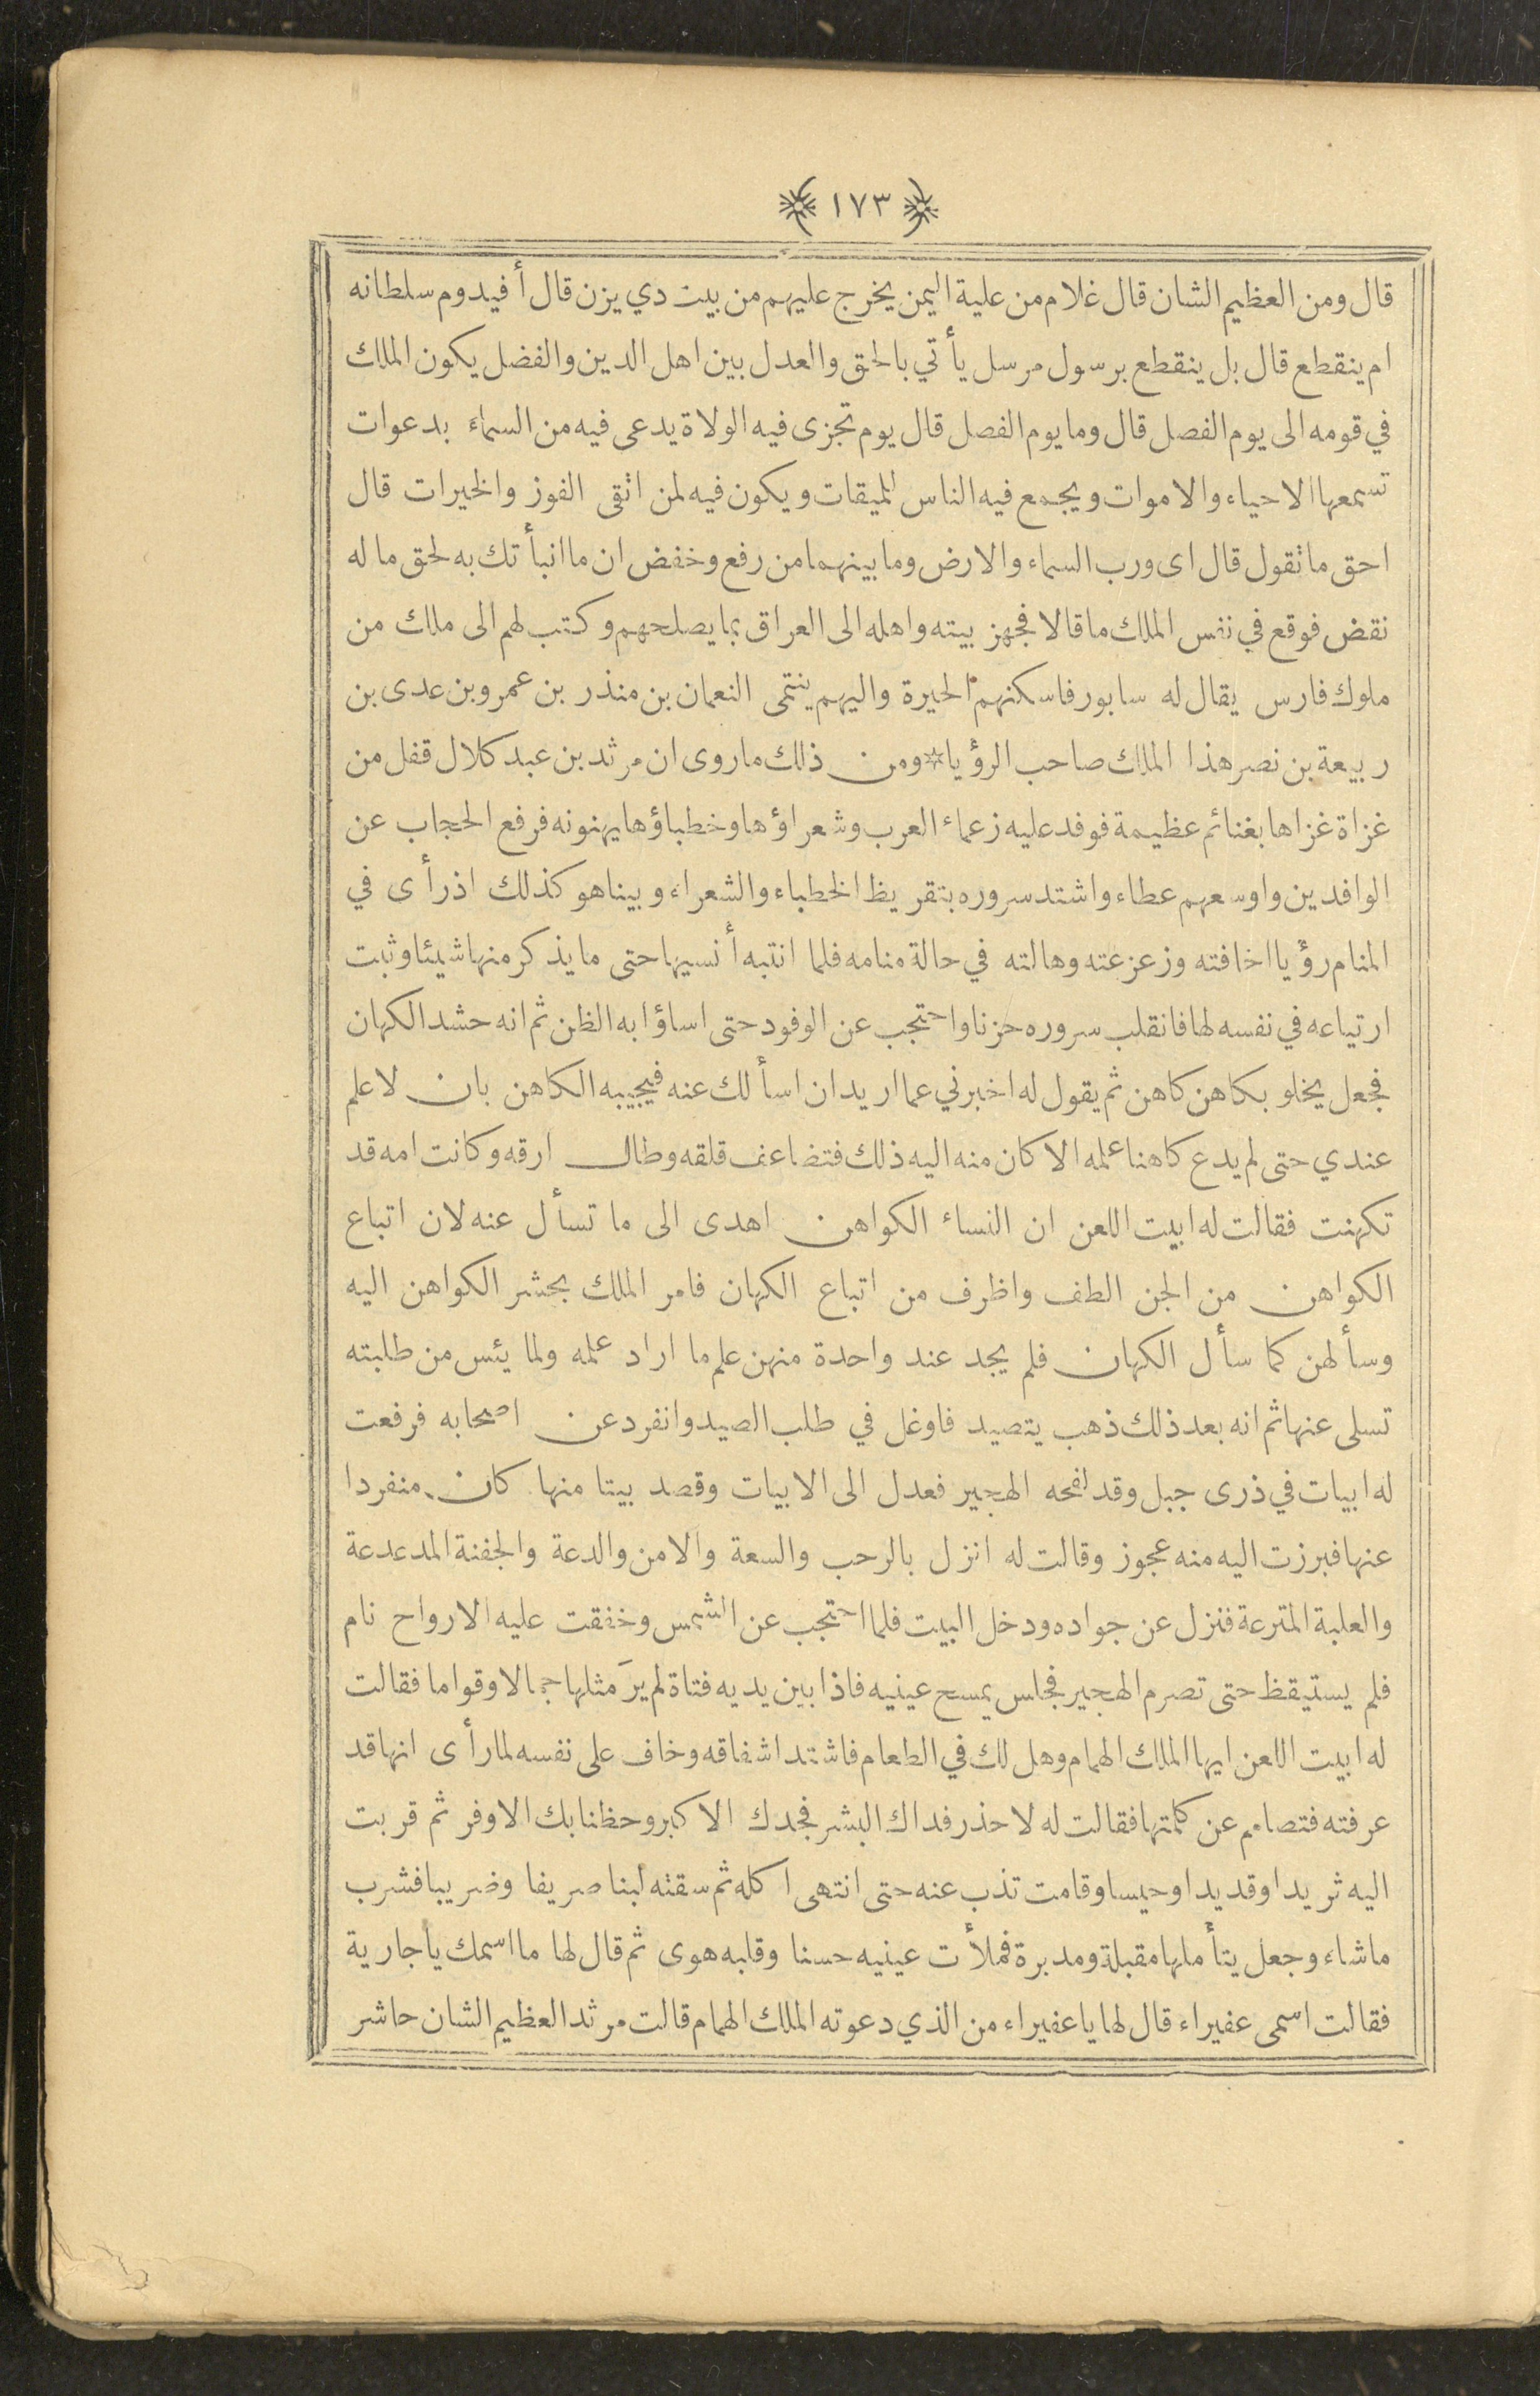 ١٧٣
قال ومن العظيم الشان قال غلام من علية اليمن يخرج عليهم من بيت دي يزن قال أفيدوم سلطانه
ام ينقطع قال بل ينقطع برسول مرسل يأتي بالحق والعدل بين اهل الدين والفضل يكون الملك
في قومه الى يوم الفصل قال وما يوم الفصل قال يوم تجزى فيه الولاة يدعى فيه من السماء بدعوات
تسمعها الاحياء والاموات ويجمع فيه الناس للميقات ويكون فيه لمن اتقى الفوز والخيرات قال
احق ما تقول قال اى ورب السماء والارض وما بينهما من رفع وخفض ان ما انبأتك به لحق ما له
نقض فوقع في نفس الملك ما قالا فجهز بيته واهله الى العراق بما يصلحهم وكتب لهم الى ملك من
ملوك فارس يقال له سابور فاسكنهم الحيرة واليهم ينتمى النعمان بن منذر بن عمرو بن عدى بن
ربيعة بن نصر هذا الملك صاحب الرؤيا * ومن ذلك ماروى ان مرثد بن عبد كلال قفل من
غزاة غزاها بغنائم عظيمة فوفد عليه زعماء العرب وشعراؤها وخطباؤها يهنونه فرفع الحجاب عن
الوافدين واوسعهم عطاء واشتد سروره بتقريظ الخطباء والشعراء وبيناهو كذلك اذ رأى في
المنام رؤيا اخافته وزعزعته وهالته في حالة منامه فلما انتبه أنسيها حتى ما يذكر منها شيئا وثبت
ارتياعه في نفسه لها فانقلب سروره حزنا واحتجب عن الوفود حتى اساؤا به الظن ثم انه حشد الكهان
فجعل يخلو بكاهن كاهن ثم يقول له اخبرني عما اريد ان اسألك عنه فيجيبه الكاهن بان لا علم
عندي حتى لم يدع كاهنا علمه الا كان منه اليه ذلك فتضاعف قلقه وطال ارقه وكانت امه قد
تكهنت فقالت له ابيت اللعن ان النساء الكواهن اهدى الى ما تسأل عنه لان اتباع
الكواهن من الجن الطف واظرف من اتباع الكهان فامر الملك بحشر الكواهن اليه
وسألهن كما سأل الكهان فلم يجد عند واحدة منهن علم ما اراد علمه ولما يئس من طلبته
تسلى عنها ثم انه بعد ذلك ذهب يتصيد فاوغل في طلب الصيد وانفرد عن اصحابه فرفعت
له ابيات في ذرى جبل وقد لفحه الهجير فعدل الى الابيات وقصد بيتا منها كان منفردا
عنها فبرزت اليه منه عجوز وقالت له انزل بالرحب والسعة والامن والدعة والجفنة المدعدعة
والعلبة المترعة فنزل عن جواده ودخل البيت فلما احتجب عن الشمس وخفقت عليه الارواح نام
فلم يستيقظ حتى تصرم الهجير فجلس يمسح عينيه فاذا بين يديه فتاة لم يرَ مثلها جمالا وقواما فقالت
له ابيت اللعن ايها الملك الهمام وهل لك في الطعام فاشتد اشفاقه وخاف على نفسه لما رأى انها قد
عرفته فتصامم عن كلمتها فقالت له لا حذر فداك البشر فجدك الاكبر وحظنا بك الاوفر ثم قربت
اليه ثريدا وقديدا وحيسا وقامت تذب عنه حتى انتهى اكله ثم سقته لبنا صريفا وضريبا فشرب
ماشاء وجعل يتأملها مقبلة ومدبرة فملأت عينيه حسنا وقلبه هوى ثم قال لها ما اسمك يا جارية
فقالت اسمى عفيراء قال لها يا عفيراء من الذي دعوته الملك الهمام قالت مرثد العظيم الشان حاشر